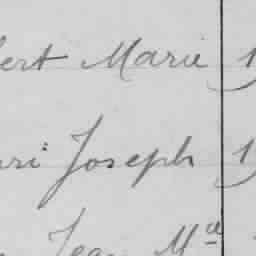 bert Marie 1
nri Joseph 1
Jean Mel